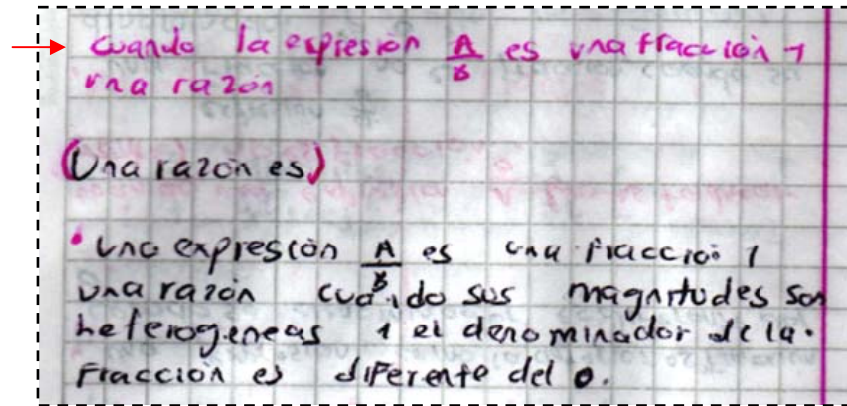 cuando la expresión A/B es una fracción y
una razón
(Una razón es)
• una expresión A/B es una fracción y
una razón cuando sus magnitudes son
heterogeneas y el denominador de la
Fracción es diferente del 0.